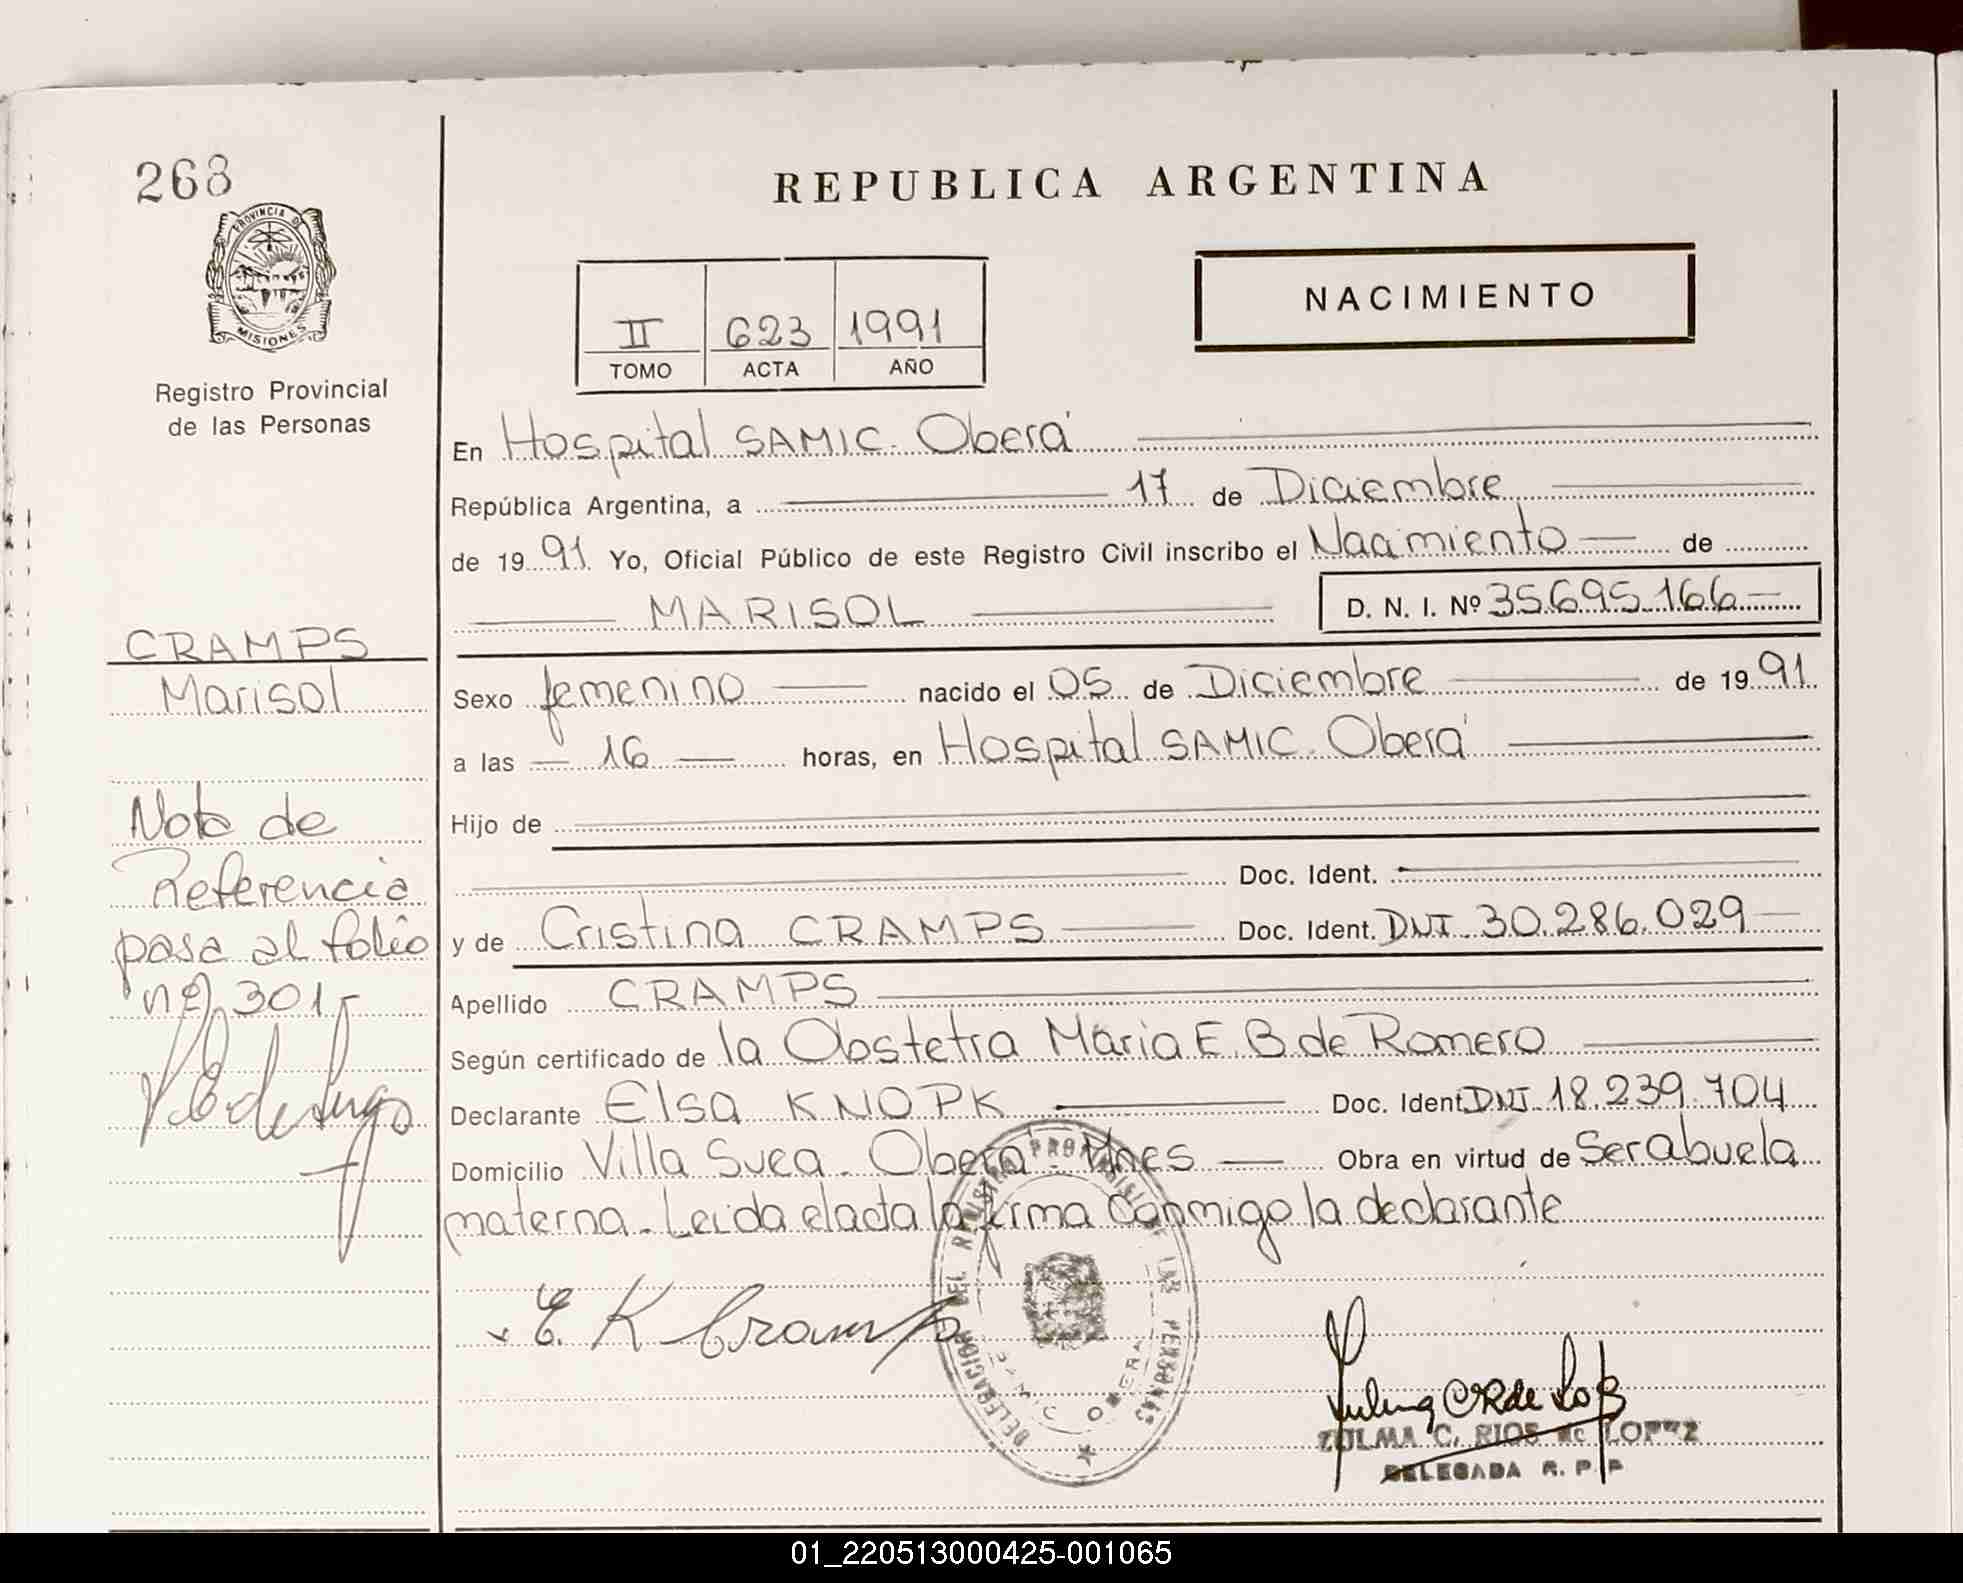 268
PROVINCIA DE
MISIONES
Registro Provincial
de las Personas
REPUBLICA ARGENTINA
II 623 1991
TOMO ACTA AÑO
NACIMIENTO
En Hospital SAMIC. Oberá
República Argentina, a 17 de Diciembre
de 1991 Yo, Oficial Público de este Registro Civil inscribo el Nacimiento de
MARISOL D. N. I. Nº 35.695.166
CRAMPS
Marisol
Sexo femenino nacido el 05 de Diciembre de 1991
a las 16 horas, en Hospital SAMIC. Oberá
Hijo de
Doc. Ident.
y de Cristina CRAMPS Doc. Ident. DNI. 30.286.029
Apellido CRAMPS
Según certificado de la Obstetra Maria E. B de Romero
Declarante Elsa KNOPK Doc. Ident. DNI. 18.239.704
Domicilio Villa Svea. Oberá. Mnes Obra en virtud de Ser abuela
materna. Leida el acta la firma conmigo la declarante
Nota de
Referencia
pasa al folio
nº 301
E. K Cramps
DELEGACION DEL REGISTRO PROVINCIAL DE LAS PERSONAS
ZULMA C. RIOS de LOPEZ
DELEGADA R. P. P
01_220513000425-001065